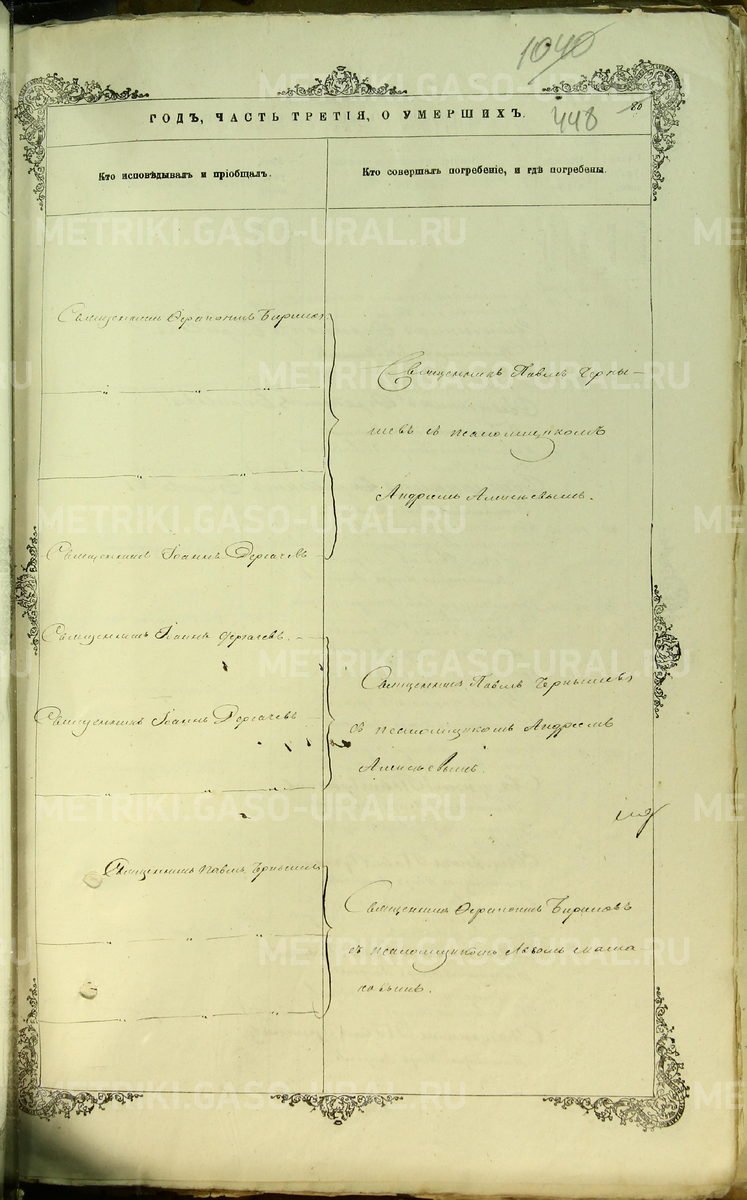 1040
448
80
ГОДЪ, ЧАСТЬ ТРЕТІЯ, О УМЕРШИХЪ.
Кто исповѣдывалъ и пріобщалъ.
Кто совершалъ погребеніе, и гдѣ погребены.
Священникъ
Священникъ Павелъ Черны-
шевъ съ псаломщикомъ
Андреемъ Алексѣевымъ.
Священникъ Іоаннъ Дергачевъ
Священникъ Іоаннъ Дергачевъ.
Священникъ Іоаннъ Дергачевъ
Священникъ Павелъ Чернышевъ
съ псаломщикомъ Андреемъ
Алексѣевымъ.
Священникъ Павелъ Чернышевъ
Священникъ
съ псаломщикомъ
METRIKI.GASO-URAL.RU